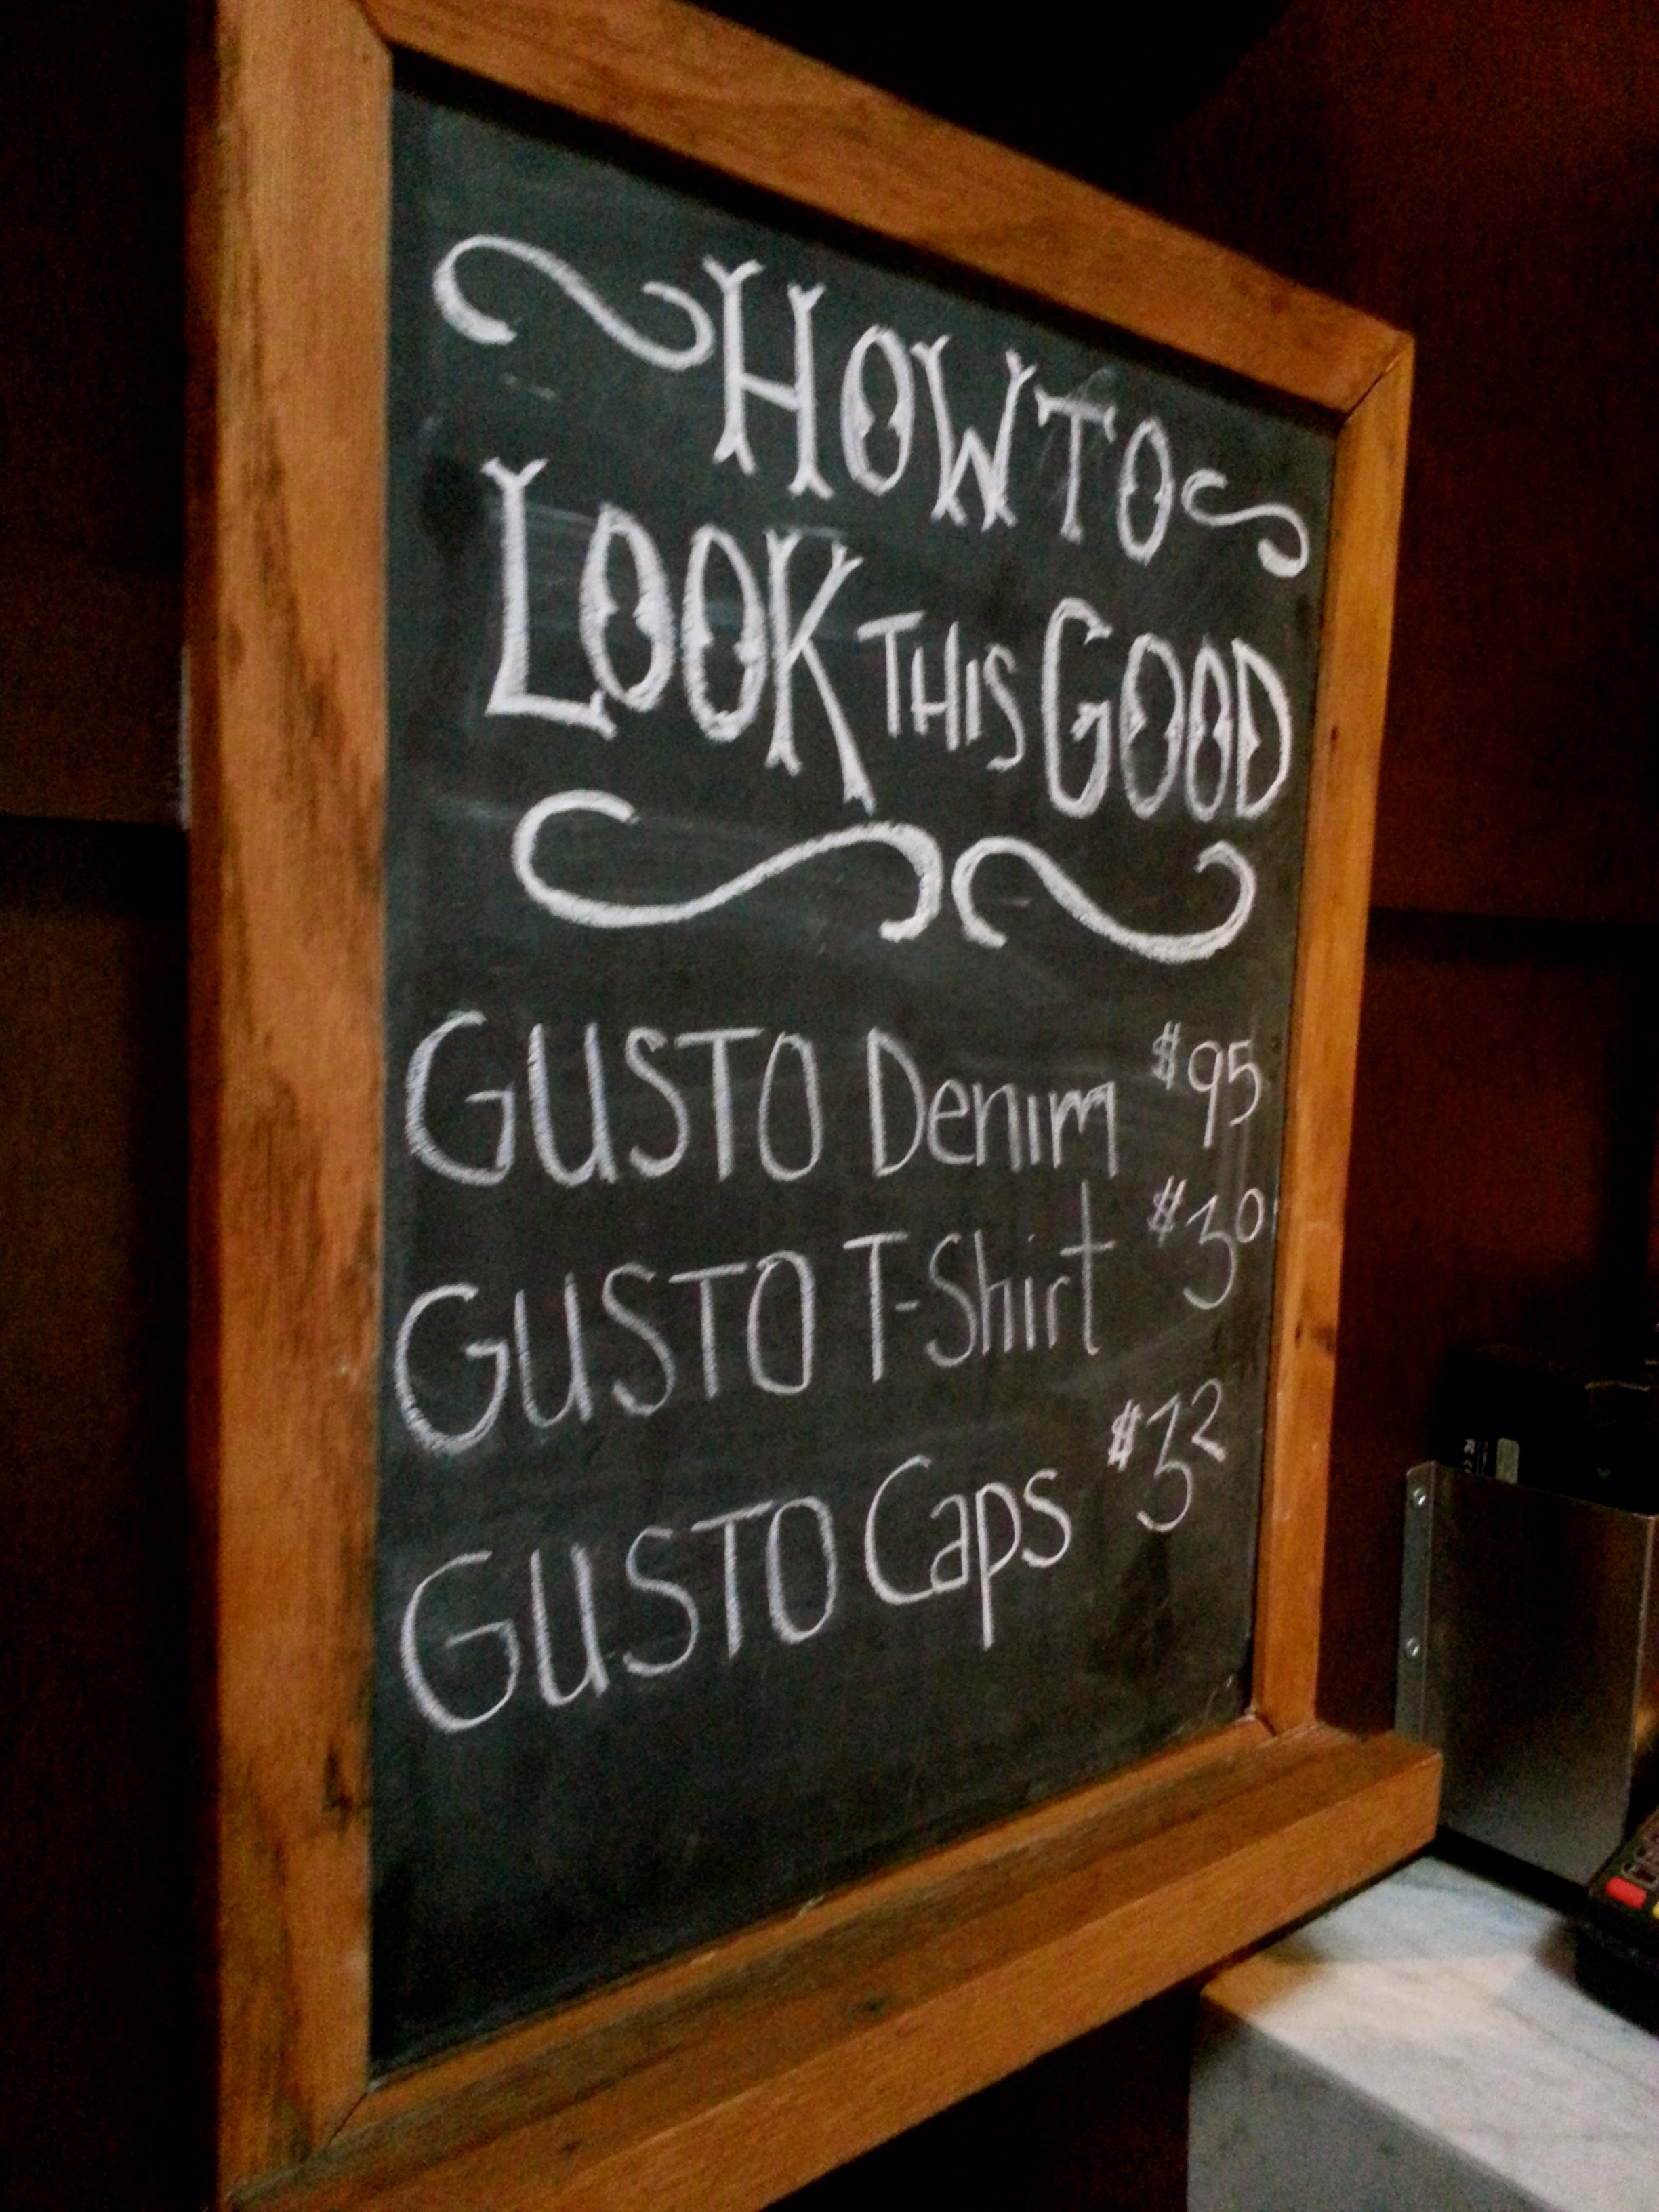 HOW TO
LOOK THIS GOOD
GUSTO Denim $95
GUSTO T-Shirt $30
GUSTO Caps $32